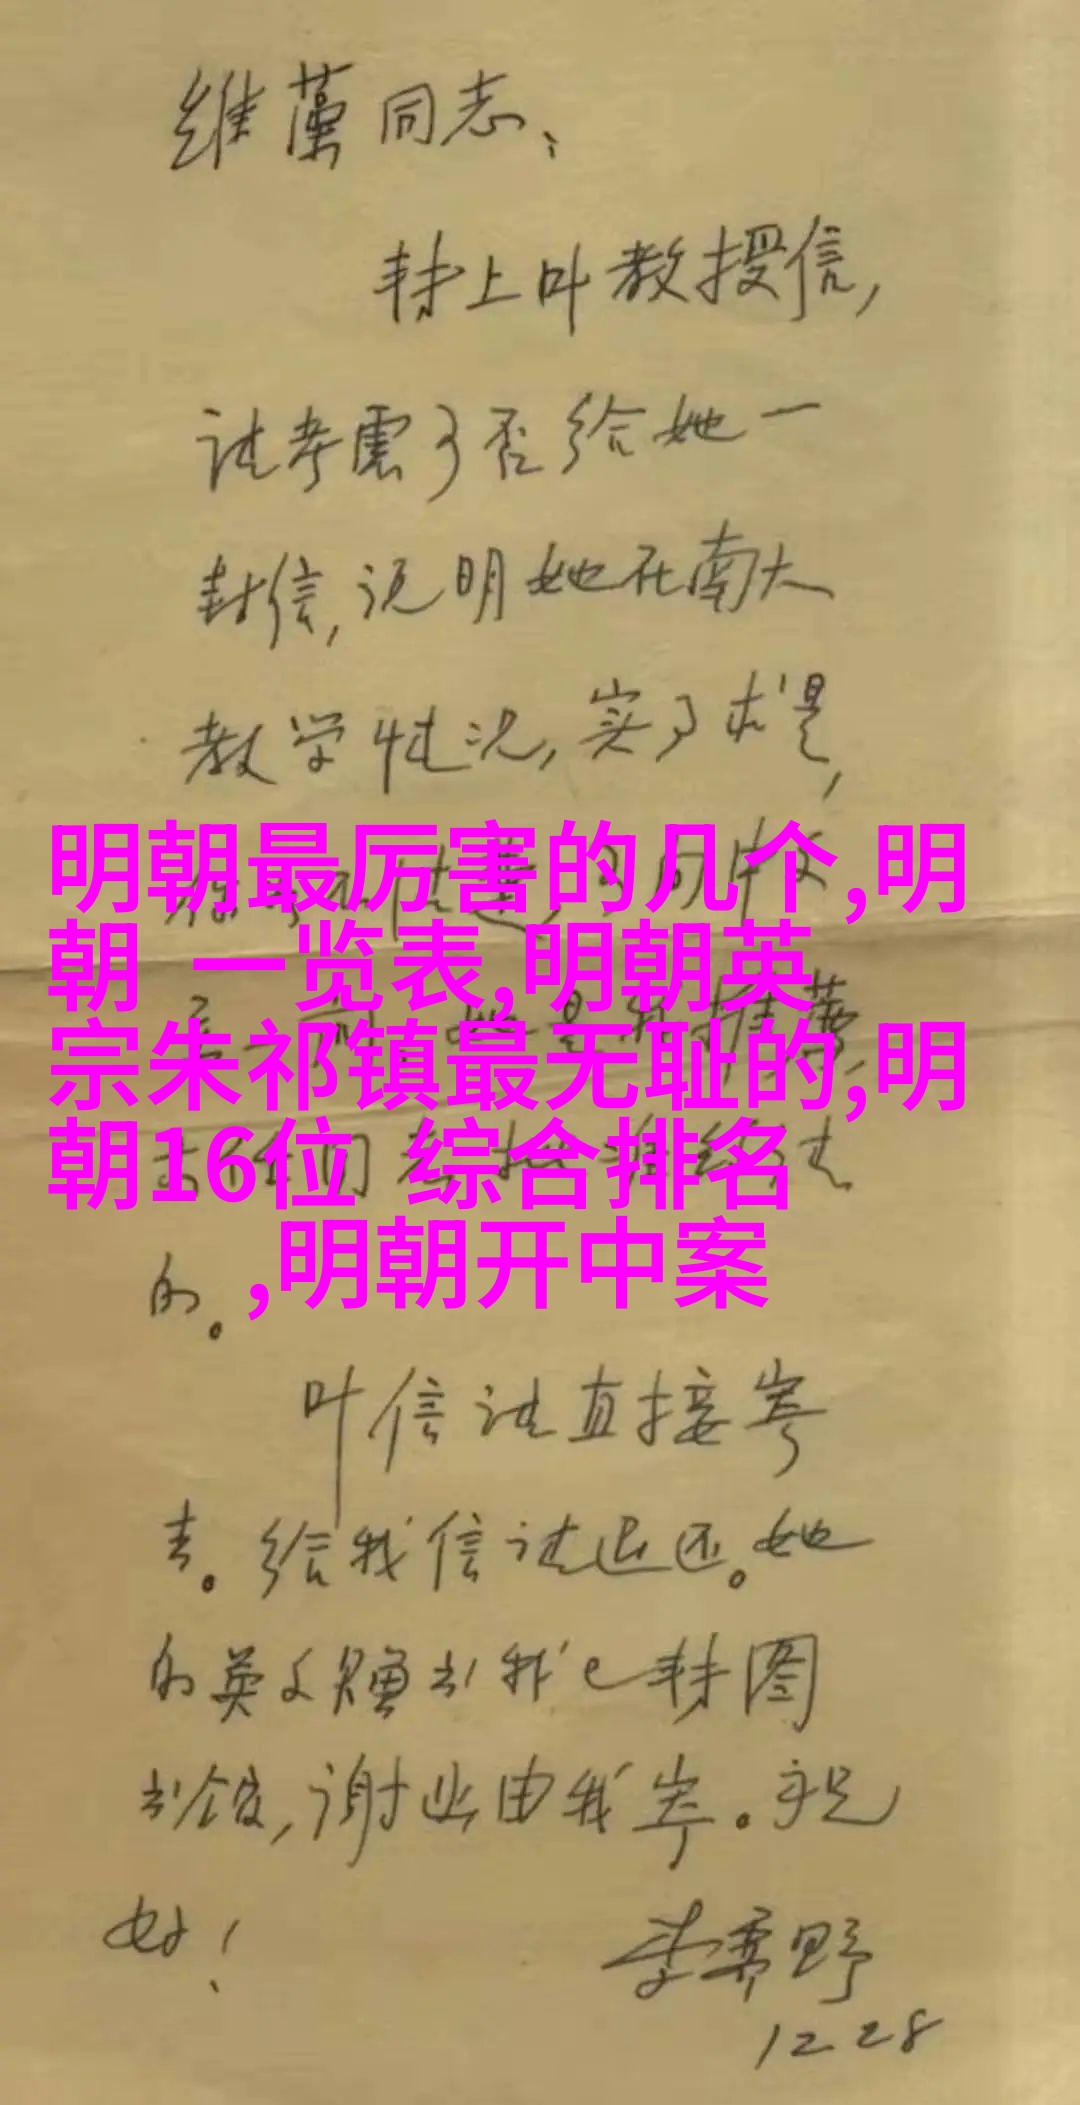 维藻同志:
转上叶教授信,
请考虑可否给她一
封信,说明她在南大
教学情况,实事求是,
明朝最厉害的几个,明
朝 一览表,明朝英
宗朱祁镇最无耻的,明
朝16位 综合排名
,明朝开中案
的。
叶信请直接寄
去。给我信请退还。她
的英文赠书我已转图
书馆,谢也由我寄。祝
好!
李霁野
12 28